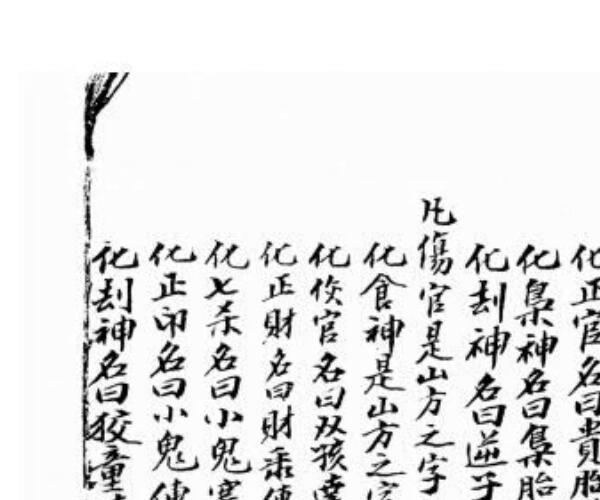 化正官名曰貴胎
化梟神名曰梟胎
化刦神名曰逆子
凡傷官是山方之字
化食神是山方之字
化官名曰双孩
化正財名曰財乘
化七杀名曰小鬼
化正印名曰小鬼
化刦神名曰狡童